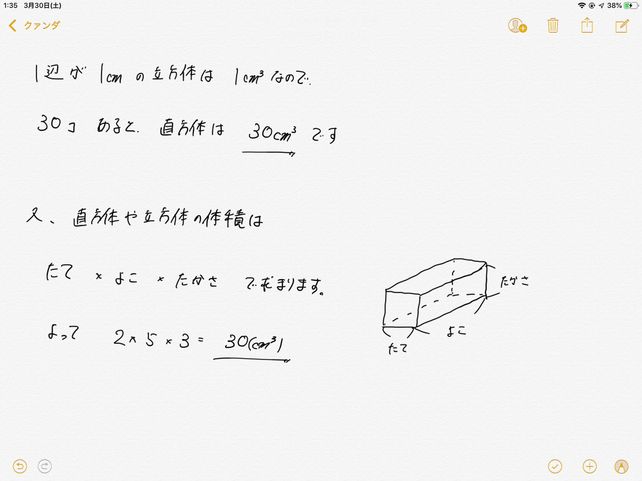 1:35 3月30日(土)
38%
クァンダ
1辺が 1cm の立方体は 1cm³なので、
30コ あると、直方体は 30cm³ です
又、直方体や立方体の体積は
たて × よこ × たかさ で求まります。
よって 2×5×3= 30(cm³)
たかさ
よこ
たて